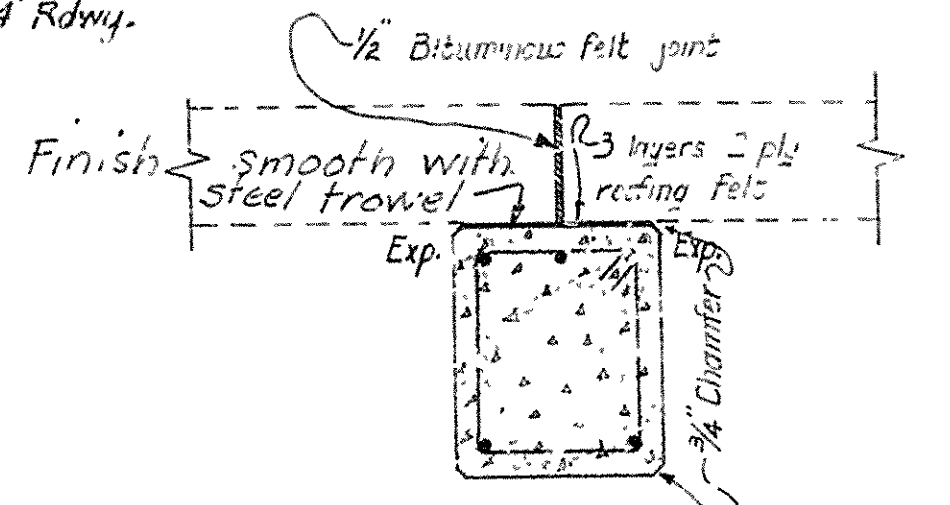 4' Rdwy.
1/2" Bituminous felt joint
Finish smooth with
steel trowel
3 layers 2 ply
roofing felt
Exp.
Exp.
3/4" Chamfer